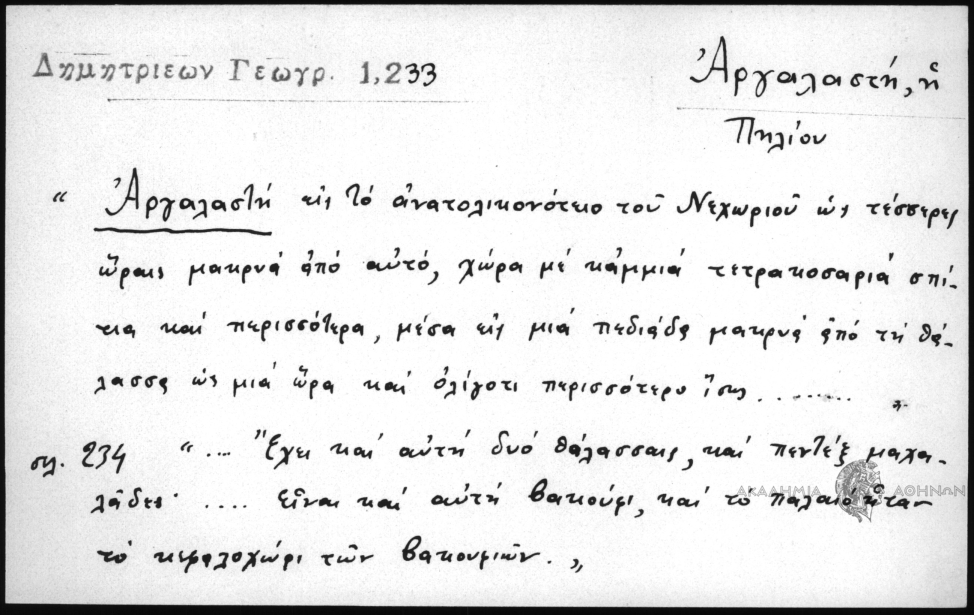 Δημητριεων Γεωγρ. 1,233
Ἀργαλαστή, ἡ
Πηλίου
“ Ἀργαλαστή εἰς τό ἀνατολικονότειο τοῦ Νεχωριοῦ ὡς τέσσερες
ὥραις μακρυά ἀπό αὐτό, χώρα μέ κἀμμιά τετρακοσαριά σπί-
τια καί περισσότερα, μέσα εἰς μιά πεδιάδα μακρυά ἀπό τή θά-
λασσα ὡς μιά ὥρα καί ὀλίγοτι περισσότερο ἴσως ..........
σελ. 234 “ ... Ἔχει καί αὐτή δυό θάλασσαις, καί πεντέξ μαχα-
λάδες· .... Εἶναι καί αὐτή βακούφι, καί τό παλαιό ἦταν
τό κεφαλοχώρι τῶν βακουφιῶν. „
ΑΚΑΔΗΜΙΑ ΑΘΗΝΩΝ